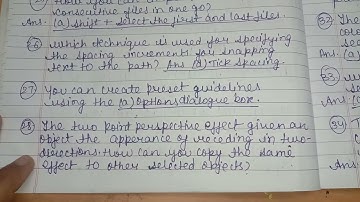 How you can
consecutive files in one go?
Ans: (a) shift + select the first and last files.
26 which technique is used for specifying
the spacing increments for snapping
text to the path? Ans (d) Tick spacing.
27 You can create preset guidelines
using the (a) options dialogue box.
28 The two point perspective effect given an
object the apperance of receding in two-
directions. How can you copy the same
effect to other selected objects?
32 The
colo
Ans: (a)
33
Ans
34 T
Ans